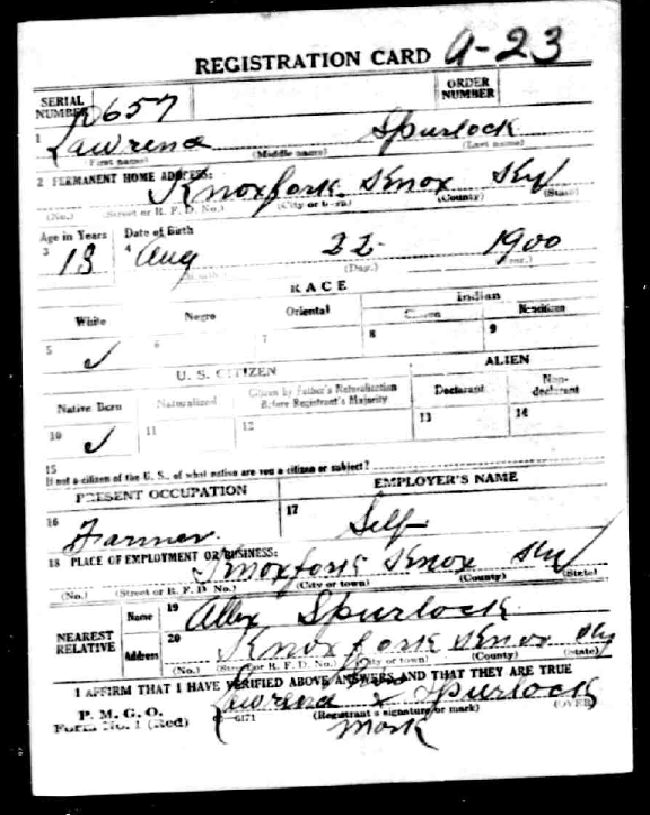 REGISTRATION CARD A-23
SERIAL NUMBER 657 ORDER NUMBER
1 Lawrence Spurlock
(First name) (Middle name) (Last name)
2 PERMANENT HOME ADDRESS: Knoxfork Knox Ky
(No.) (Street or R. F. D. No.) (City or town) (County) (State)
Age in Years Date of Birth
3 18 4 Aug 22 1900
(Month) (Day.) (Year.)
RACE
White Negro Oriental Indian
Citizen Noncitizen
5 ✓ 6 7 8 9
U. S. CITIZEN ALIEN
Native Born Naturalized Citizen by Father's Naturalization Before Registrant's Majority Declarant Non-declarant
10 ✓ 11 12 13 14
15
If not a citizen of the U. S., of what nation are you a citizen or subject?
PRESENT OCCUPATION EMPLOYER'S NAME
16 Farmer. 17 Self
18 PLACE OF EMPLOYMENT OR BUSINESS: Knoxfork Knox Ky
(No.) (Street or R. F. D. No.) (City or town) (County) (State)
NEAREST RELATIVE Name 19 Spurlock
Address 20 Knoxfork Knox Ky
(No.) (Street or R. F. D. No.) (City or town) (County) (State)
I AFFIRM THAT I HAVE VERIFIED ABOVE ANSWERS AND THAT THEY ARE TRUE
P. M. G. O.
Form No. 1 (Red) 6171 Lawrence x Spurlock
(Registrant's signature or mark) (OVER)
mark